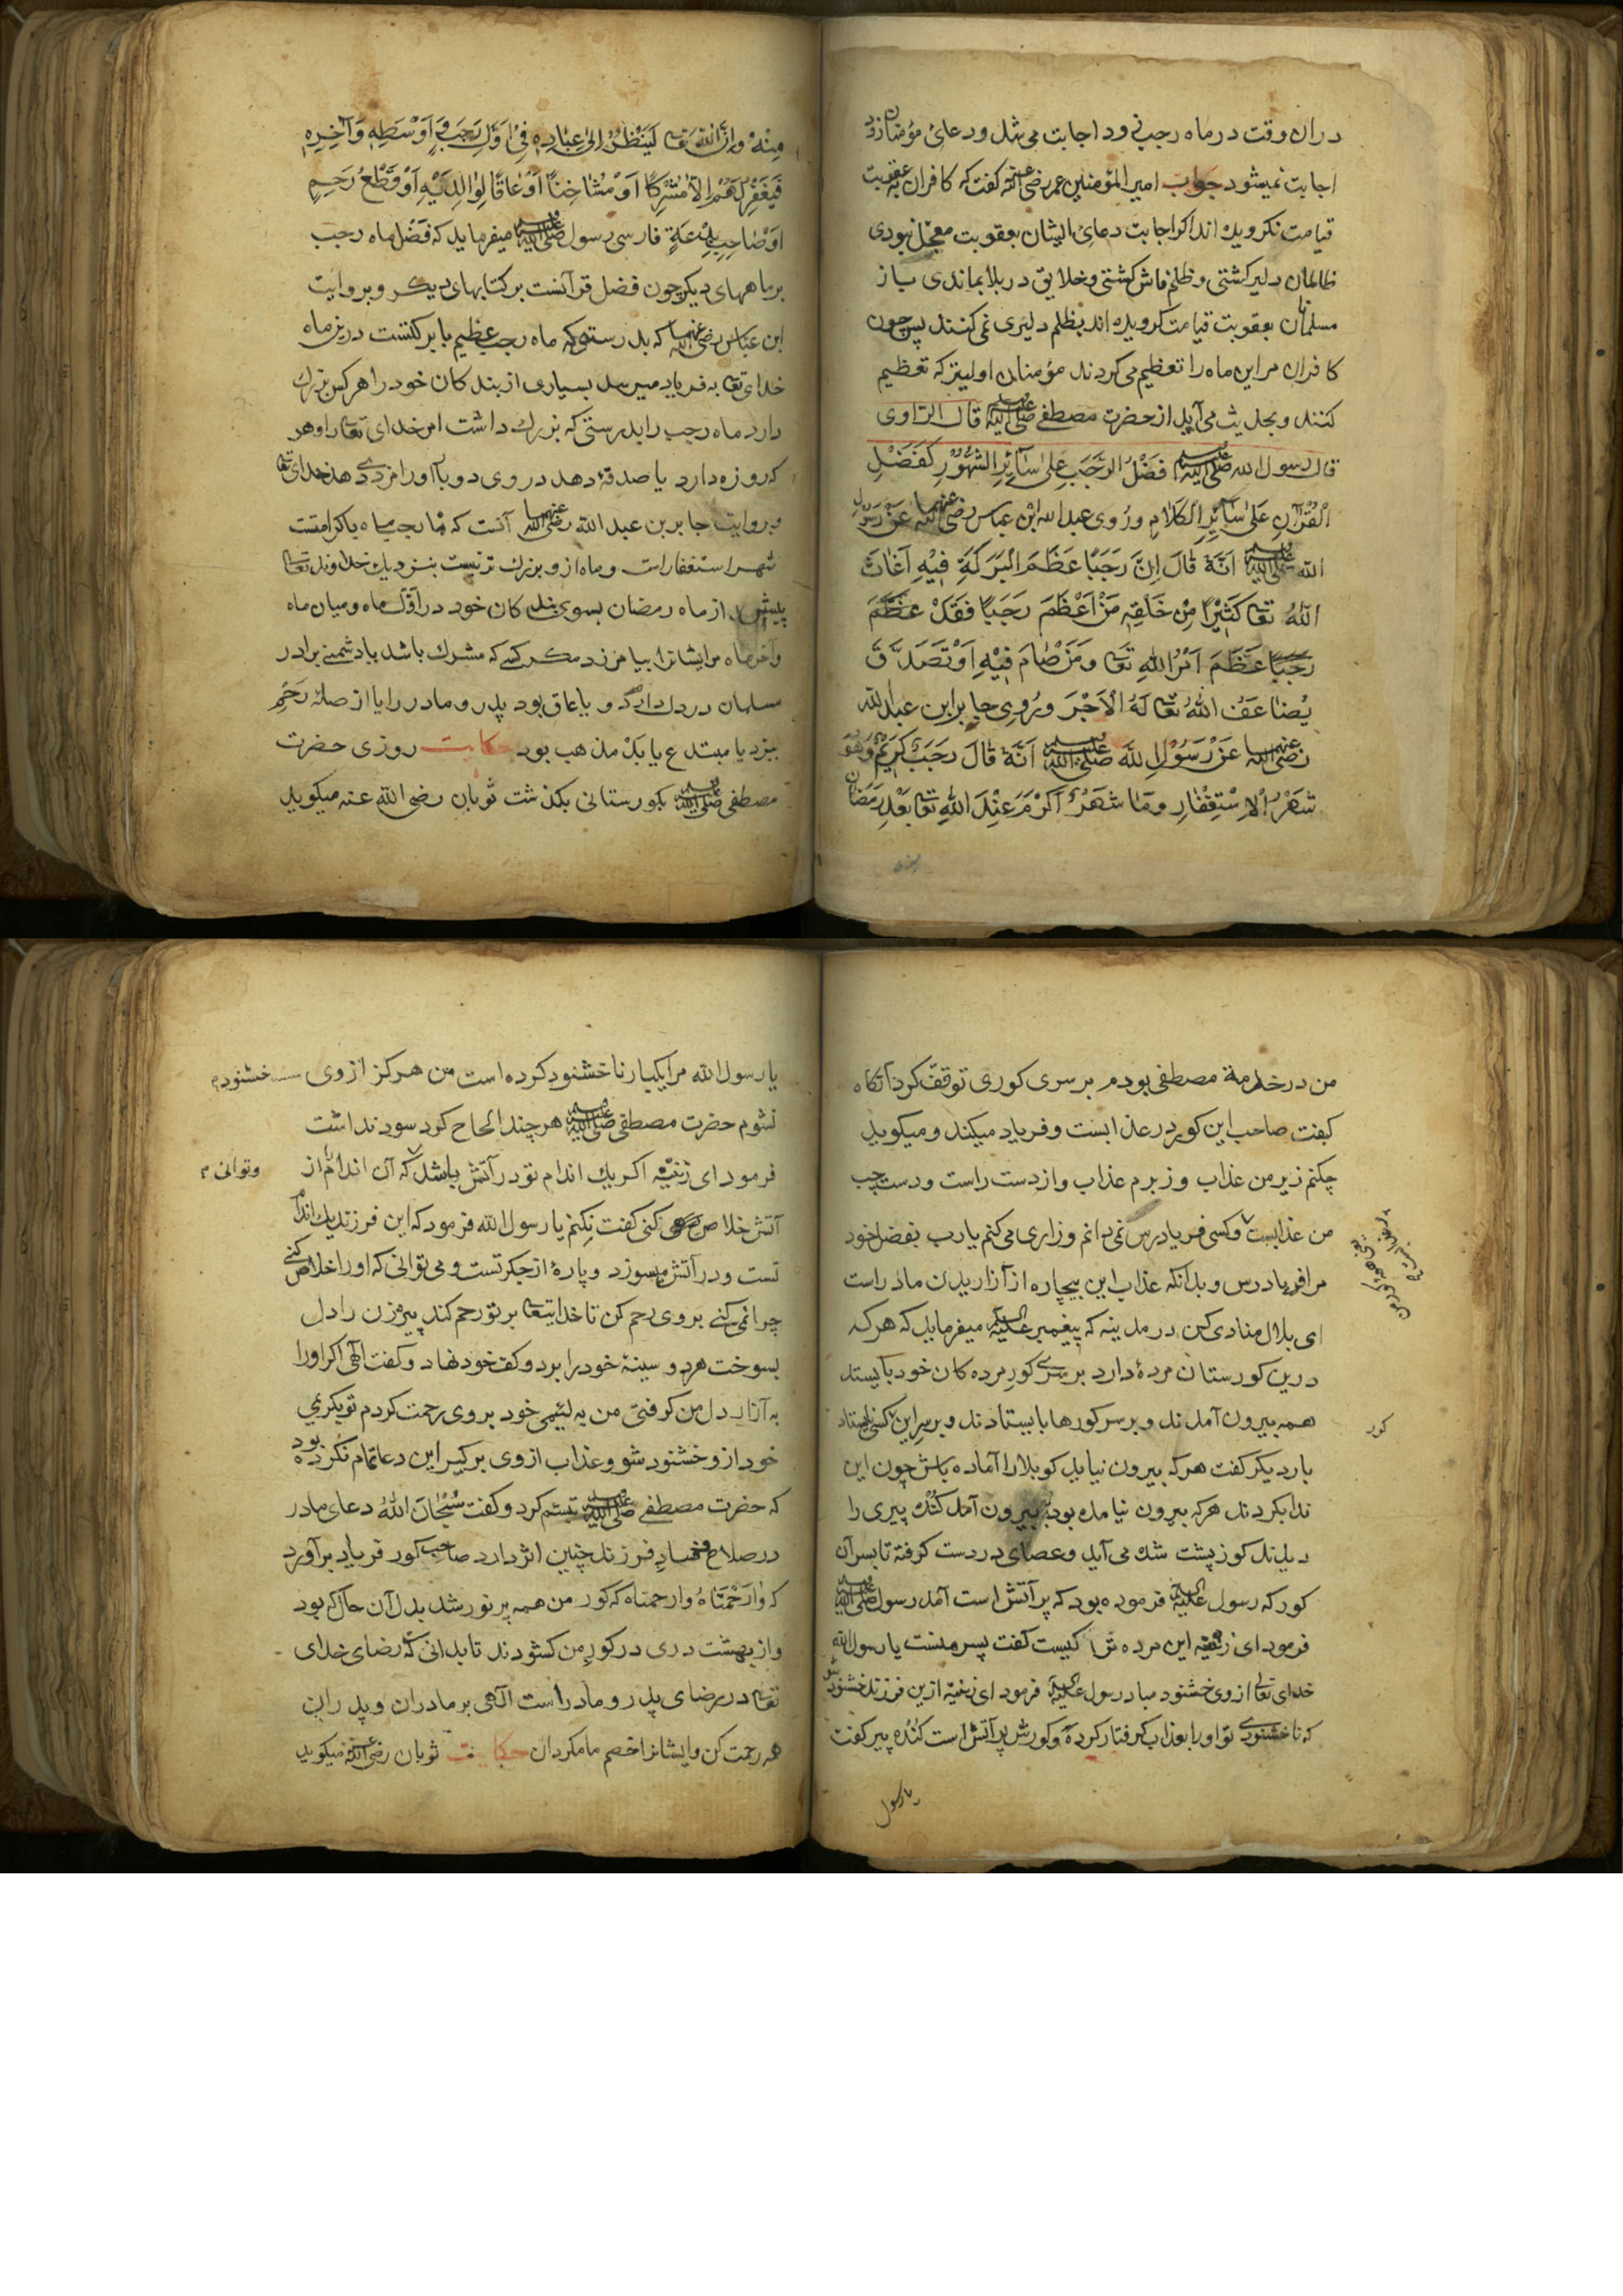 دران وقت در ماه رجب زود اجابت می شد و دعای مؤمنان زود
اجابت نمیشود جواب امیر المؤمنین عمر رضی الله عنه کفت که کافران به عقوبت
قیامت نکرویده اند اکر اجابت دعای ایشان بعقوبت معجل نبودی
ظالمان دلیر کشتی و ظلم فاش کشتی و خلایق در بلا بماندی باز
مسلمانان بعقوبت قیامت کرویده اند بظلم دلیری نمی کنند پس چون
کافران مر این ماه را تعظیم می کردند مؤمنان اولیتر که تعظیم
کنند و بحدیث می آید از حضرت مصطفی صلی الله علیه وسلم قال الراوی
قال رسول الله صلی الله علیه وسلم فَضْلُ الرَّجَبِ عَلىٰ سَآئِرِ الشُّهُوْرِ كَفَضْلِ
الْقُرْآنِ عَلىٰ سَآئِرِ الْكَلَامِ ورُوِى عبد الله ابْنِ عباس رضی الله عنهما عَنْ رَسُوْلِ
الله صلی الله علیه وسلم اَنَّهٗ قٰالَ اِنَّ رَجَبًا عَظَمَ الْبَرَكَةِ فِيْهِ اَغَاثَ
اللهُ تعا كَثِيْرًا مِنْ خَلْقِهٖ مَنْ اَعْظَمَ رَجَبًا فَقَدْ عَظَّمَ
رَجَبًا عَظَّمَ اَمْرُ اللهِ تعَا وَمَنْ صَامَ فِيْهِ اَوْ تَصَدَّقَ
يُضٰاعَفُ اللهُ تعَا لَهُ الْاَجْرَ ورُوِى جابر ابن عبد الله
رضی الله عنهما عَنْ رَسُوْلِ لله صلی الله علیه وسلم اَنَّهٗ قٰالَ رَجَبٌ كَرِيْمٌ وَهُوَ
شَهْرُ الْاِسْتِغْفَارِ ومَا شَهْرٌ اَكْرَمَ عِنْدَ اللهِ تعَا بَعْدِ رَمَضَان
مِنْهُ وَاِنَّ اللهَ تعَا لَيَنْظُرُ اِلىٰ عِبَادِهٖ فِىْ اَوَّلِ رَجَبٍ وَ اَوْسَطِهٖ وَ آخِرِهٖ
فَيَغْفِرُ لَهُمْ اِلَّا مُشْرِكًا اَوْ مُشَاحِنًا اَوْ عَاقًا لِوَالِدَيْهِ اَوْ قَطْعُ رَحِمٍ
اَوْ صَاحِبِ بِدْعَةٍ فارسی رسول صلی الله علیه وسلم میفرماید که فضل ماه رجب
بر ماههای دیکر چون فضل قرآنست بر کتابهای دیکر و بروایت
ابن عباس رضی الله عنهما که بدرستی که ماه رجب عظیم با برکتست درین ماه
خدای تعا به فریاد میرسد بسیاری از بندکان خود را هر کس بزرک
دارد ماه رجب را بدرستی که بزرك داشت امر خدای تعا را و هر
که روزه دارد یا صدقه دهد در وی دوبار اورا مزد دهد خدای تعا
و بروایت جابر بن عبد الله رضی الله عنهما آنست که ماه رجب ماه باکرامتست
شهر استغفار است و ماه ازو بزرك تر نیست بنزدیك خداوند تعا
پیش از ماه رمضان بسوی بندکان خود در اوّل ماه و میان ماه
و آخر ماه مر ایشانرا بیامرزد مکر کسی که مشرك باشد یا دشمنی برادر
مسلمان در دل دارد و یا عاق بود پدر و مادر را یا از صلۀ رَحِم
ببرد یا مبتدع یا بدْ مذهب بود حکایت روزی حضرت
مصطفی صلی الله علیه وسلم بکورستانی بکذشت ثوبان رضی الله عنه میکوید
من در خدمة مصطفی بودم بر سری کوری توقف کرد آنکاه
کبفت صاحب این کور در عذابست و فریاد میکند و میکوید
چکنم زیر من عذاب و زبرم عذاب و از دست راست و دست چپ
من عذابست و کسی فریاد رس نمی دانم و زاری می کنم یا رب بفضل خود
مرا فریاد رس و بدانکه عذاب این بیچاره از آزاریدن مادر است
ای بلال منادی کن در مدینه که پیغمبر علیه السلام میفرماید که هر که
درین کورستان مردۀ دارد بر سری کور مرده کان خود بایستد
همه بیرون آمدند و بر سر کورها بایستادند و بر سر این کسی نایستاد
کور
بار دیکر کفت هر که بیرون نیاید کو بلا را آماده باش چون این
ندا بکردند هر که بیرون نیامده بود بیرون آمد کنده پیری را
دیدند کوز پشت شده می آید و عصای در دست کرفته تا بسر آن
کور که رسول علیه السلام فرموده بود که پر آتش است آمد رسول صلی الله علیه وسلم
فرمود ای زعیفه این مرده ترا کیست کفت پسر منست یا رسول الله
خدای تعالی از وی خشنود مباد رسول علیه السلام فرمود ای زعیفه ازین فرزند خشنود شو
که ناخشنودی تو اورا بعذاب کرفتار کرده و کورش پر آتش است کنده پیر کفت
یا رسول
یا رسول الله مرا یکبار ناخشنود کرده است من هرکز از وی خشنود
نشوم حضرت مصطفی صلی الله علیه وسلم هر چند الحاح کرد سود نداشت
فرمود ای زعیفه اکر یك اندام تو در آتش باشد که آن اندام از
وتوانی
آتش خلاص کنی کنی کفت نکنم یا رسول الله فرمود که این فرزند یك اندام
تست و در آتش میسوزد و پارۀ از جکر تست و می توانی که اورا خلاص کنی
چرا نمی کنی بر وی رحم کن تا خدایتعا بر تو رحم کند پیره زن را دل
بسوخت هر دو سینۀ خود را برد و کف خود نهاد و کفت الهی اکر اورا
به آزار دل من کرفتی من به لئیمی خود بر وی رحمت کردم تو بکریمی
خود ازو خشنود شو و عذاب از وی بر کیر این دعا تمام نکرده بود
که حضرت مصطفی صلی الله علیه وسلم تبسّم کرد و کفت سُبْحَانَ اللهُ دعای مادر
در صلاح و فساد فرزند چنین اثر دارد صاحب کور فریاد برآورد
که وٰارَحْمَتَاهُ وارحمتاه که کور من همه پر نور شد بدل آن حال که بود
و از بهشت دری در کور من کشودند تا بدانی که رضای خدای
تعا در رضای پدر و مادر است الهی بر مادران و پدران
همه رحمت کن و ایشانرا خصم ما مکردان حکایت ثوبان رضی الله عنه میکوید